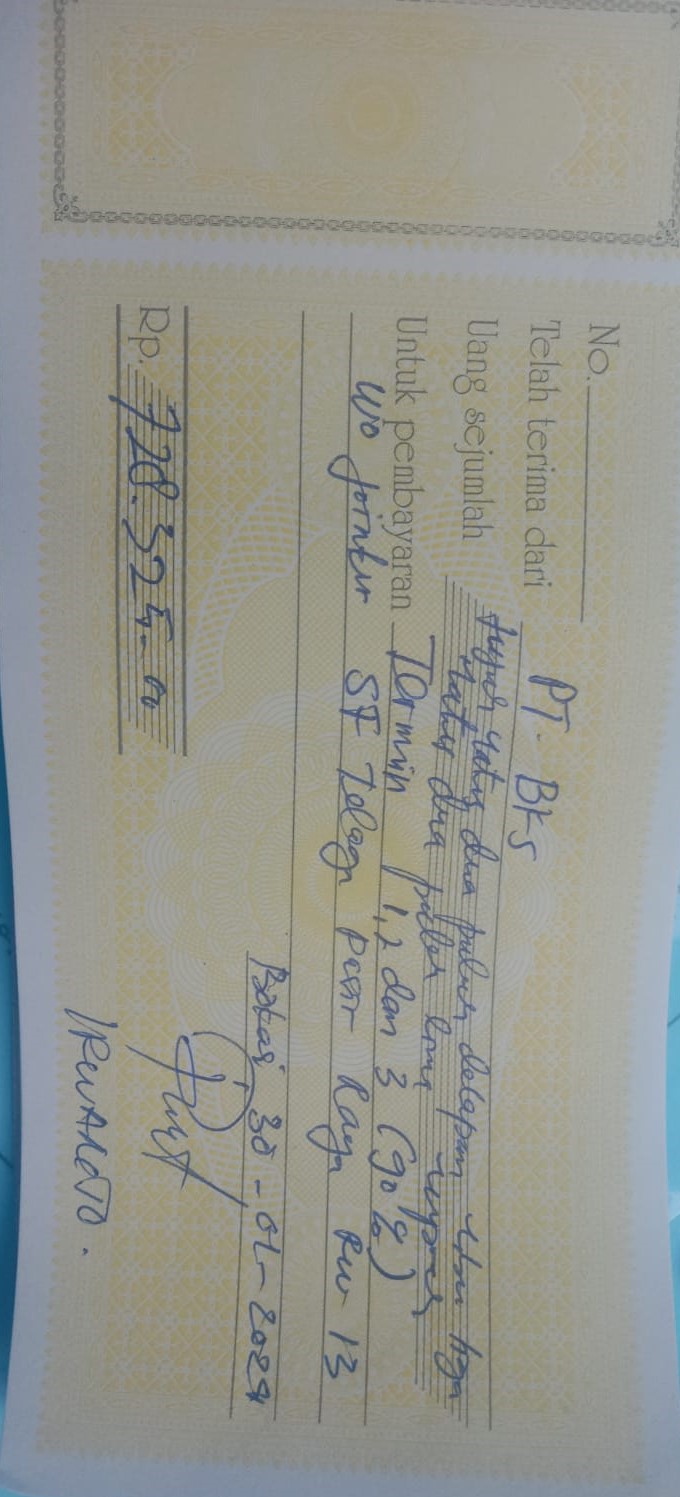 No.
Telah terima dari PT. BKS
Uang sejumlah tujuh ratus dua puluh delapan ribu tiga
ratus dua puluh lima rupiah
Untuk pembayaran Termin 1,2 dan 3 (90%)
WO jointer SF Telaga Pasir Raya RW 13
Bekasi 30-01-2024
Rp. 728.325-00